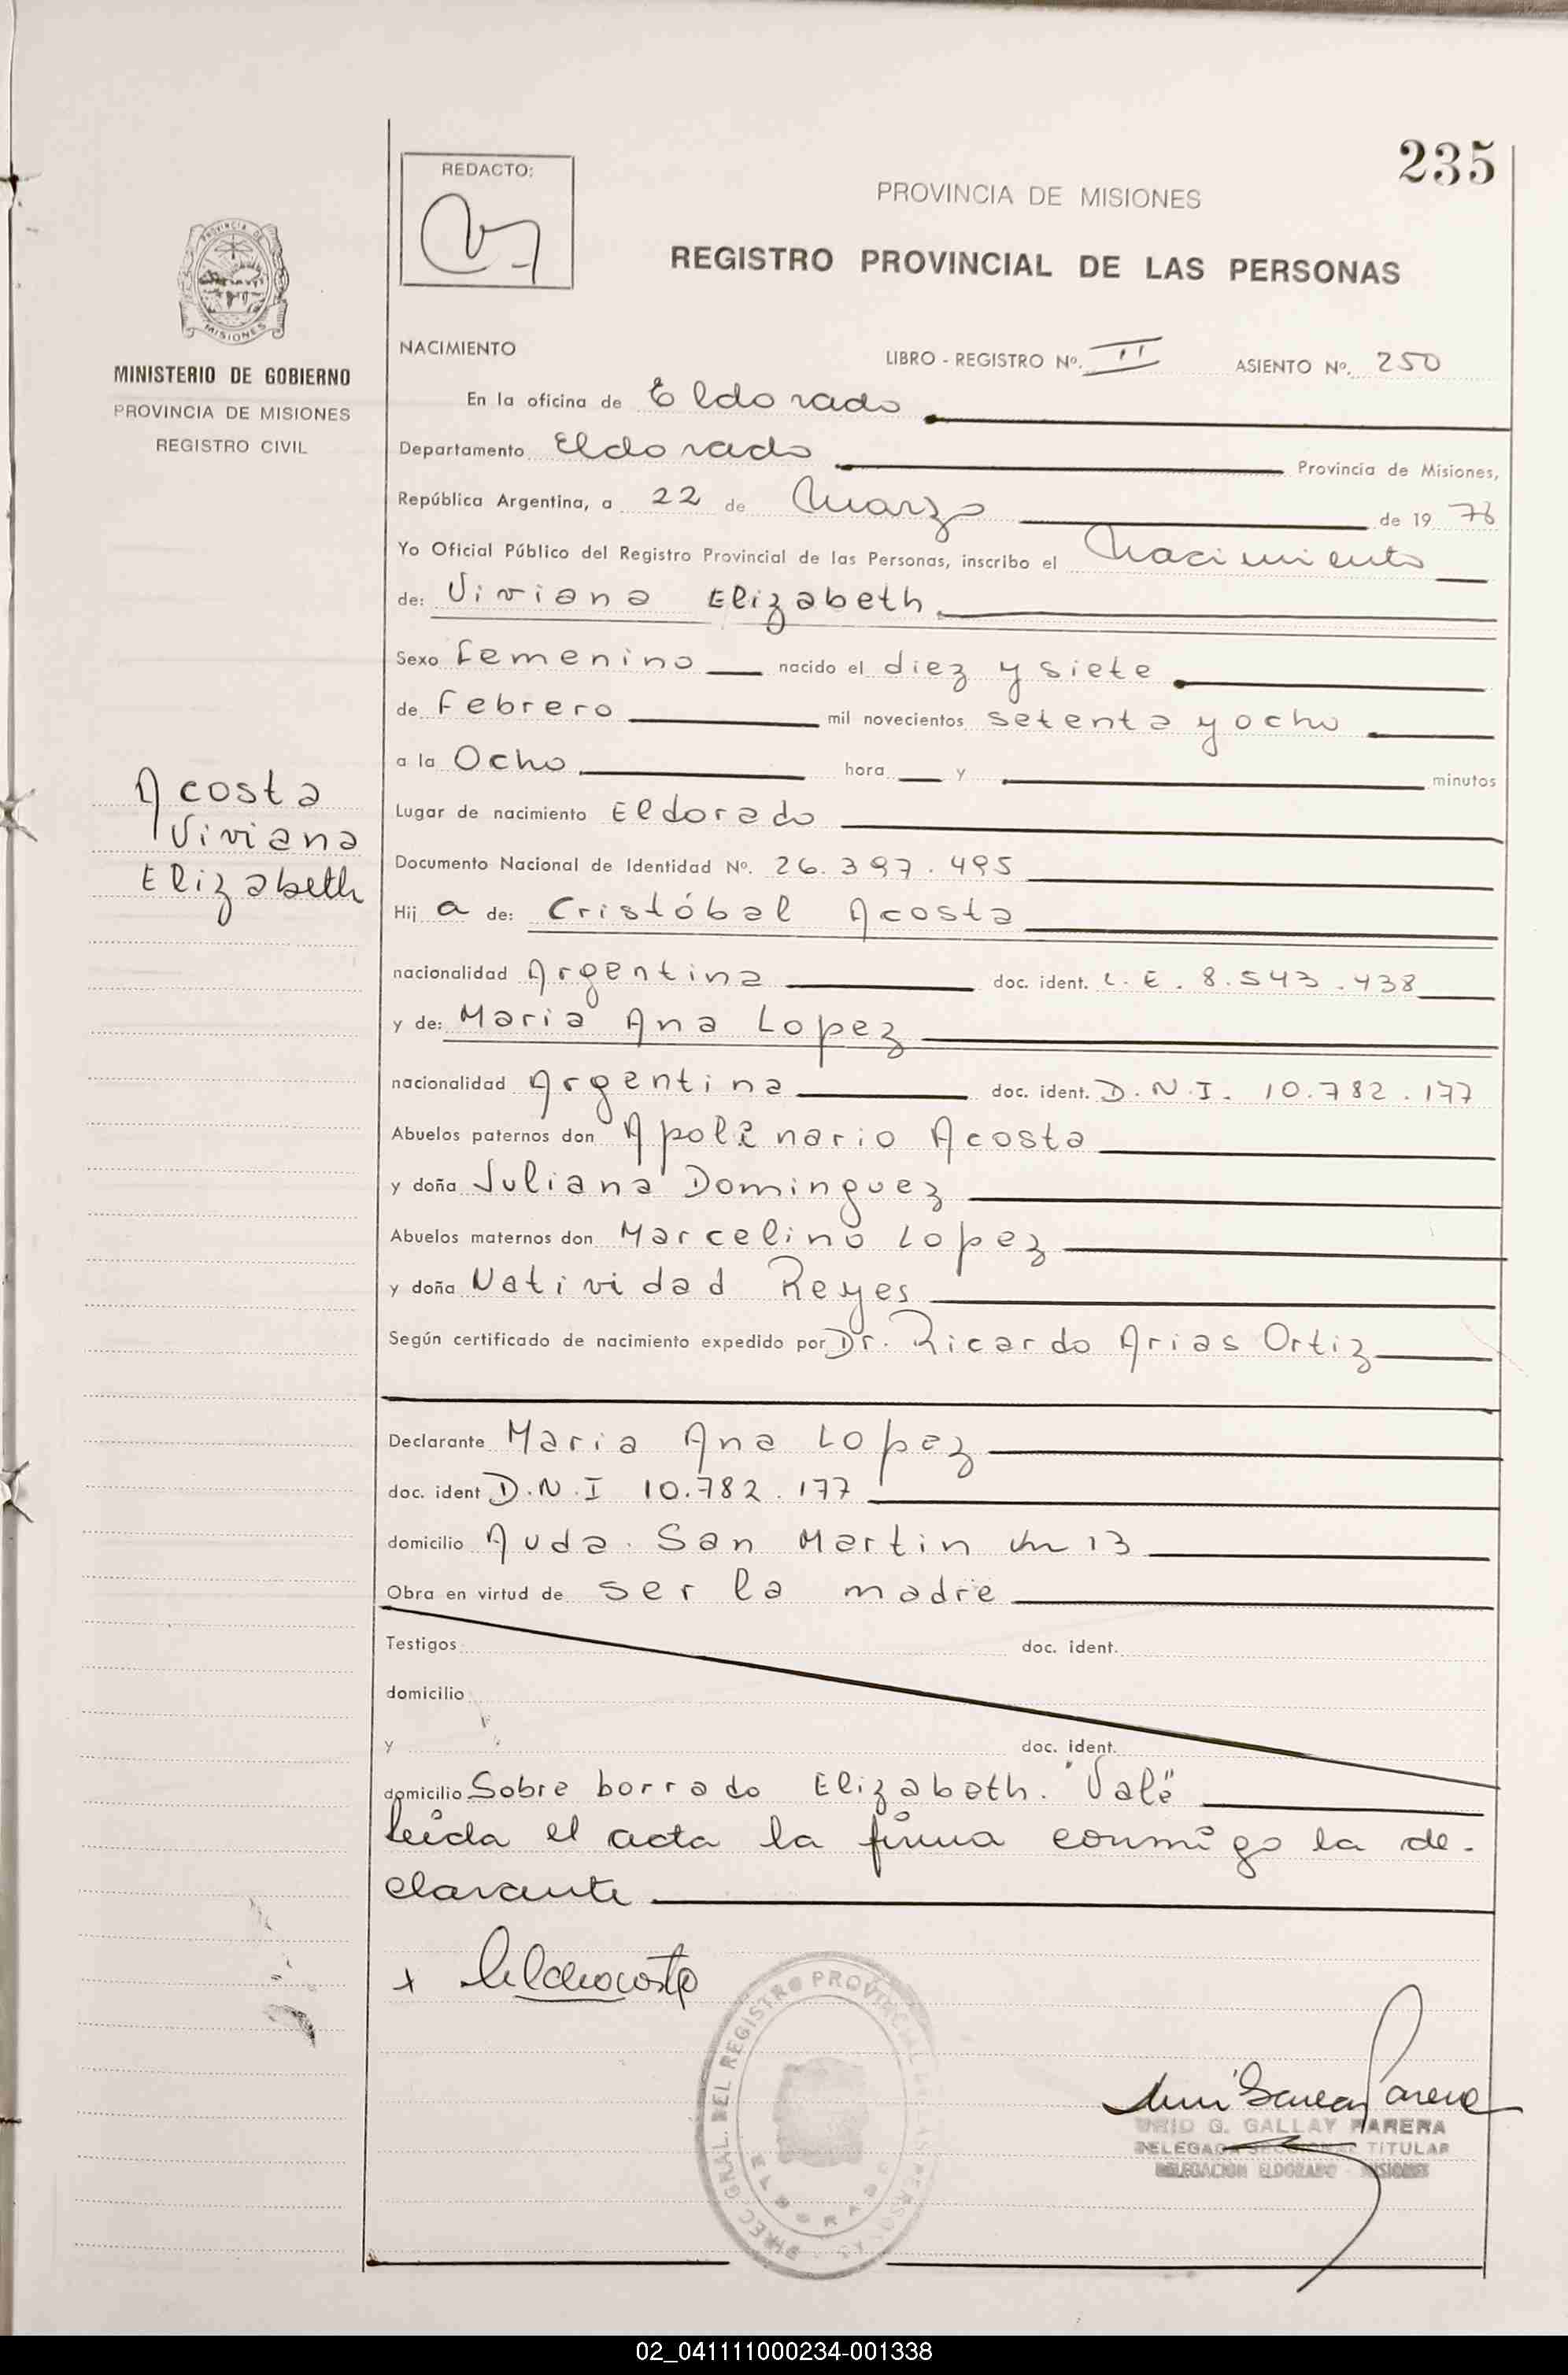 235
REDACTO:
PROVINCIA DE MISIONES
REGISTRO PROVINCIAL DE LAS PERSONAS
MISIONES
MINISTERIO DE GOBIERNO
PROVINCIA DE MISIONES
REGISTRO CIVIL
Acosta
Viviana
Elizabeth
NACIMIENTO LIBRO - REGISTRO Nº. II ASIENTO Nº. 250
En la oficina de Eldorado
Departamento Eldorado Provincia de Misiones,
República Argentina, a 22 de Marzo de 19 78
Yo Oficial Público del Registro Provincial de las Personas, inscribo el Nacimiento
de: Viviana Elizabeth
Sexo femenino nacido el diez y siete
de Febrero mil novecientos setenta y ocho
a la Ocho hora y minutos
Lugar de nacimiento Eldorado
Documento Nacional de Identidad Nº. 26.397.495
Hij a de: Cristóbal Acosta
nacionalidad Argentina doc. ident. L.E. 8.543.438
y de: Maria Ana Lopez
nacionalidad Argentina doc. ident. D.N.I. 10.782.177
Abuelos paternos don Apolinario Acosta
y doña Juliana Dominguez
Abuelos maternos don Marcelino Lopez
y doña Natividad Reyes
Según certificado de nacimiento expedido por Dr. Ricardo Arias Ortiz
Declarante Maria Ana Lopez
doc. ident D.N.I 10.782.177
domicilio Avda. San Martin Km 13
Obra en virtud de ser la madre
Testigos doc. ident.
domicilio
y doc. ident.
domicilio Sobre borrado Elizabeth. "Vale"
leida el acta la firma conmigo la de-
clarante
x
DIREC. GRAL. DEL REGISTRO PROVINCIAL DE LAS PERSONAS
ELDORADO
G. GALLAY PARERA
DELEGADA SECCIONAL TITULAR
DELEGACION ELDORADO - MISIONES
02_041111000234-001338